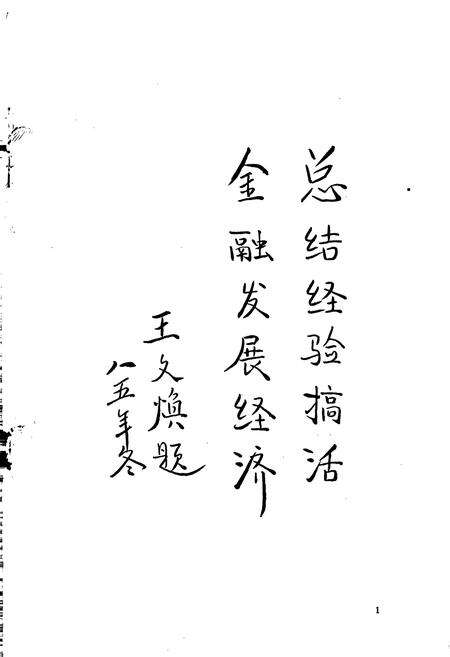 总结经验搞活
金融发展经济
王文焕题
八五年冬
1